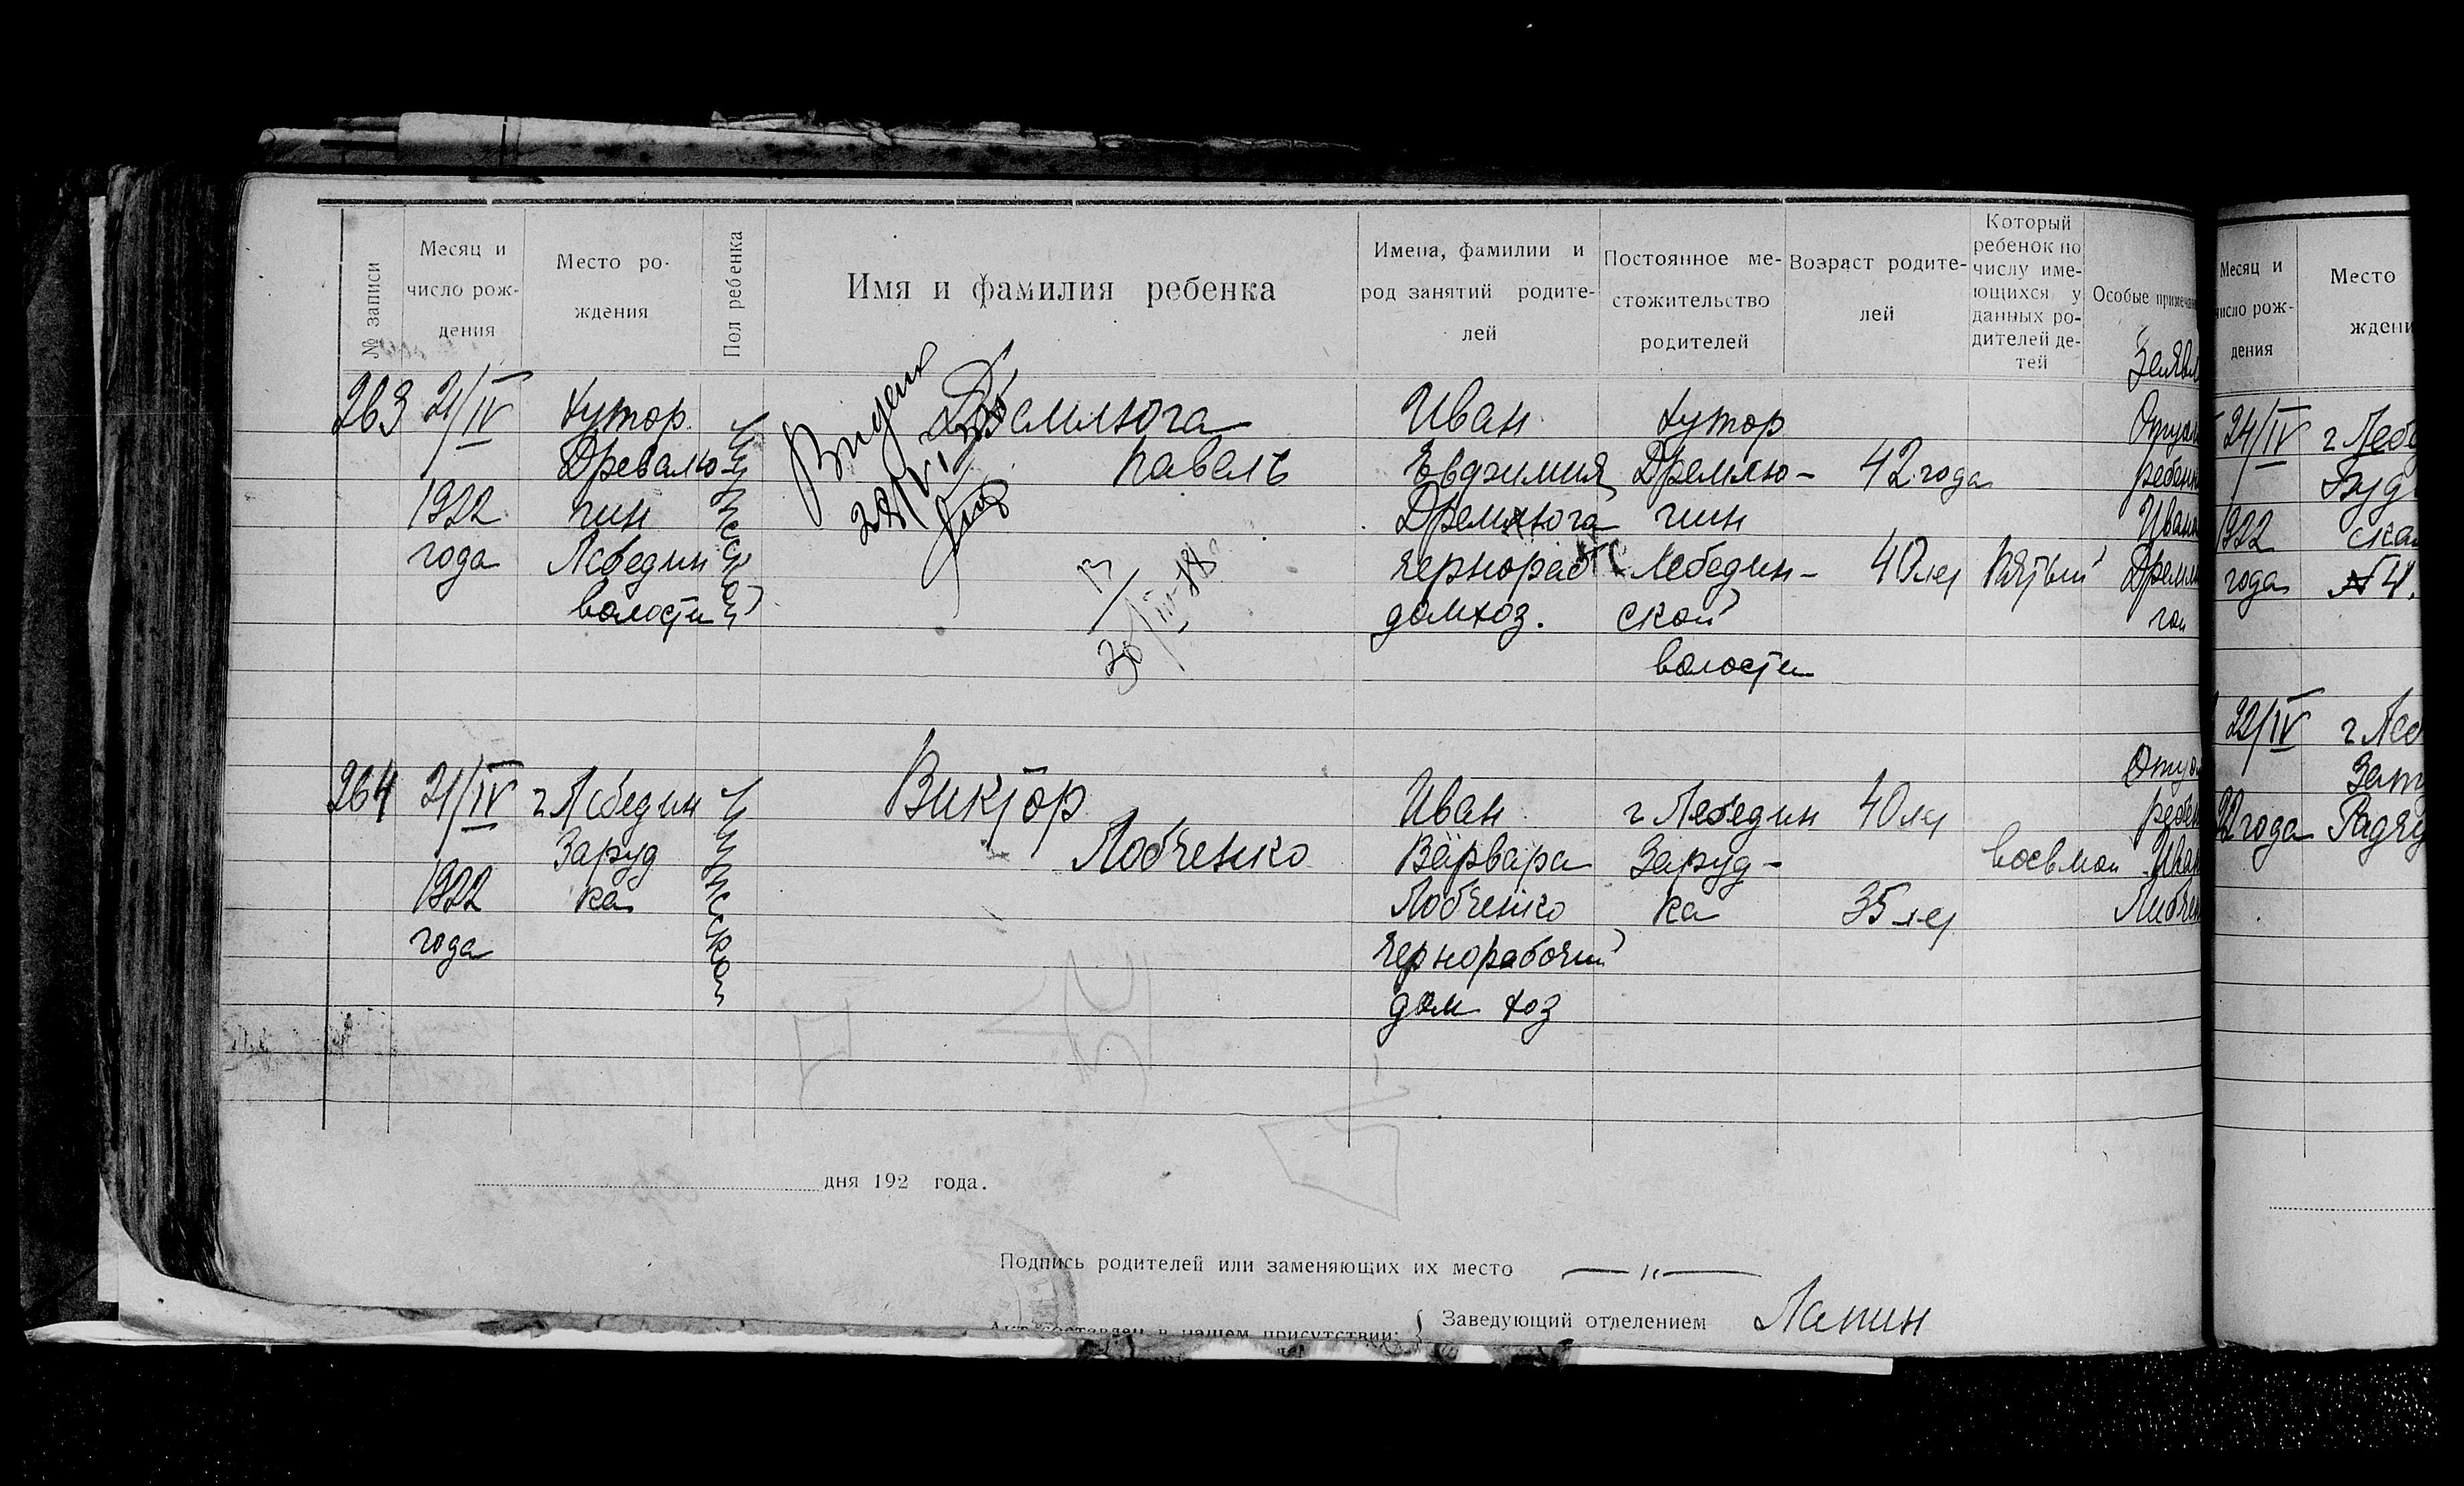 № записи
Месяц и число рож-дения
Место ро-ждения
Пол ребенка
Имя и фамилия ребенка
Имена, фамилии и род занятий родите-лей
Постоянное ме-стожительство родителей
Возраст родите-лей
Который ребенок по числу име-ющихся у данных ро-дителей де-тей
Особые примечан
263
21/IV
1922
года
хутор
Древалю-
гин
Лебедин
волости
Мужской
Видача
Дремлюга
Павелъ
30/IV-48
Иван
Евдокимия
Дремлюга
чернораб
домхоз.
хутор
Дремлю-
гин
Лебедин-
ской
волости
42 года
40 лет
Пятый
Заявл
Отцом
ребенка
Ивано
Дремлю
гой
264
21/IV
1922
года
г Лебедин
Заруд
ка
Мужской
Виктор
Лобченко
Иван
Варвара
Лобченко
чернорабочий
дом хоз
г Лебедин
Заруд-
ка
40 лет
35 лет
восьмой
Отцо
ребен
Иван
Лобчен
дня 192 года.
Подпись родителей или заменяющих их место —〃—
Акт составлен в нашем присутствии: { Заведующий отделением Лапин
Месяц и
число рож-
дения
Место
ждени
24/IV
1922
года
г Лебе
№ 4.
22/IV
22 года
г Леб